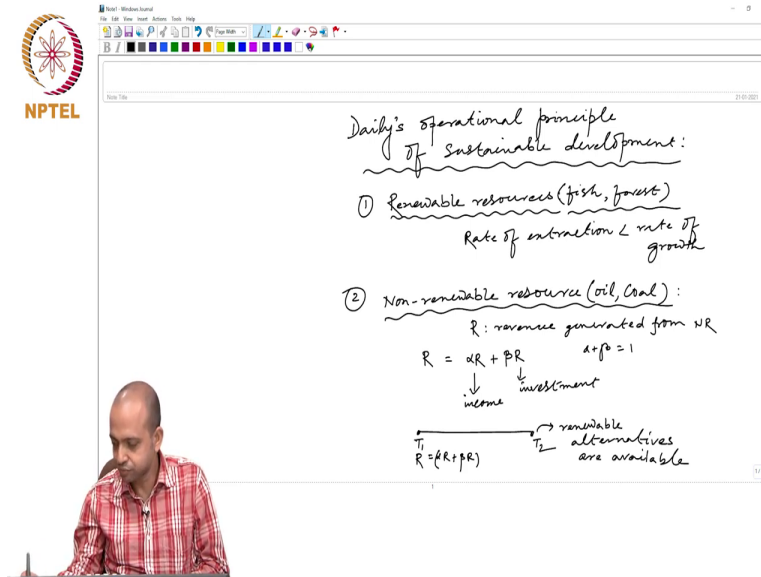 Note1 - Windows Journal
File Edit View Insert Actions Tools Help
Page Width
B I
NPTEL
Note Title
21-01-2021
Daily's operational principle
of sustainable development:
① Renewable resources (fish, forest)
Rate of extraction < rate of
growth
② Non-renewable resource (oil, coal) :
R : revenue generated from NR
R = αR + βR α+β = 1
income investment
T1 T2 → renewable
alternatives
R = (αR + βR) are available
1/
1